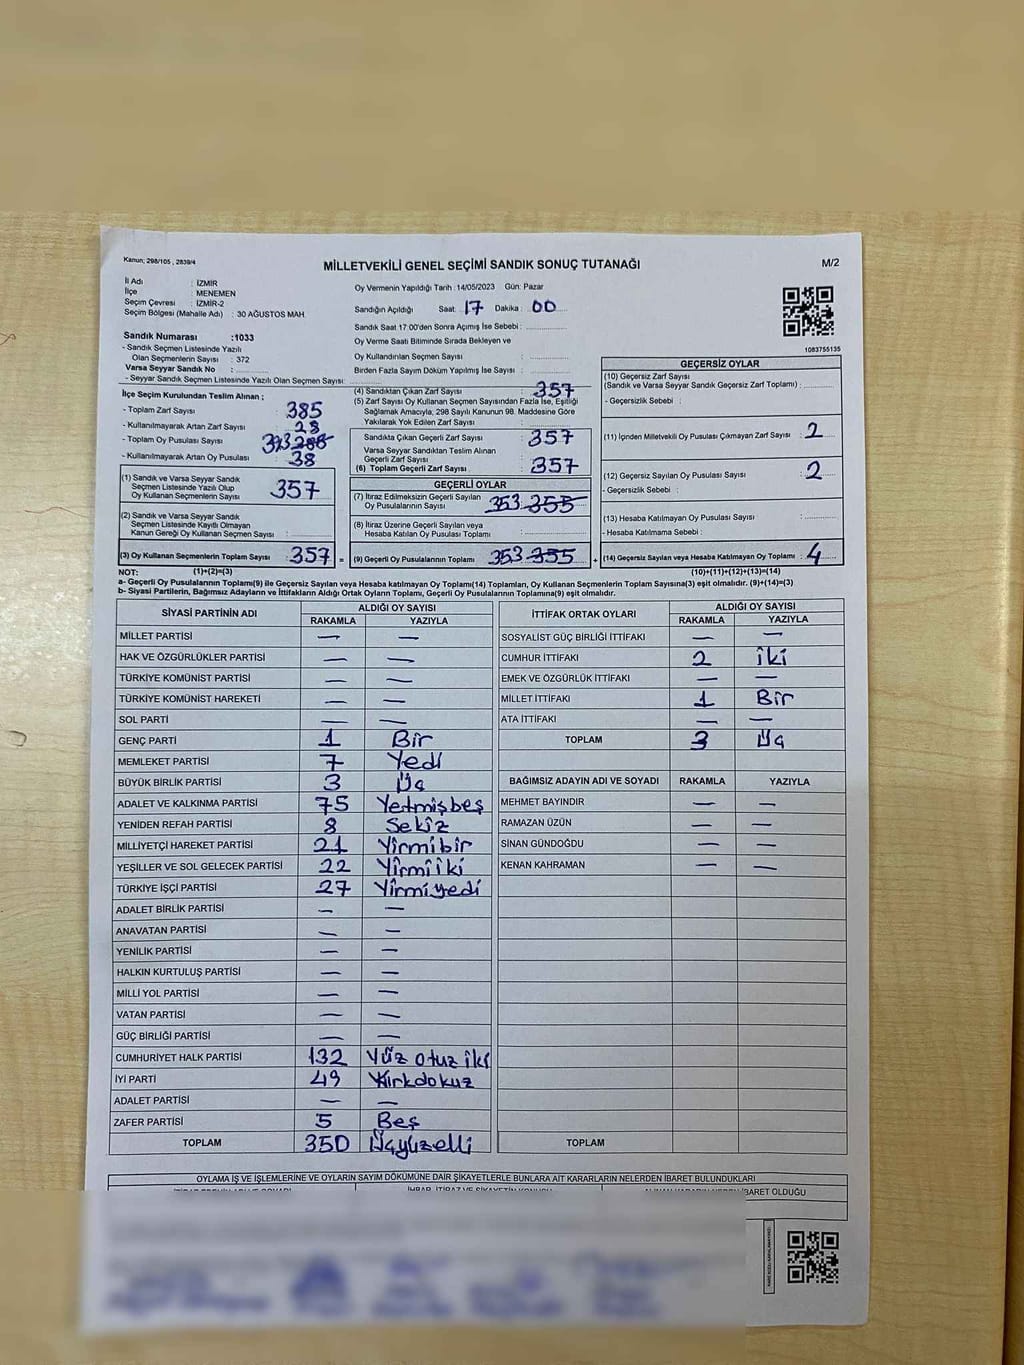 Kanun; 298/105 , 2839/4
MİLLETVEKİLİ GENEL SEÇİMİ SANDIK SONUÇ TUTANAĞI
M/2
İl Adı : İZMİR
İlçe : MENEMEN
Seçim Çevresi : İZMİR-2
Seçim Bölgesi (Mahalle Adı) : 30 AĞUSTOS MAH.
Sandık Numarası :1033
- Sandık Seçmen Listesinde Yazılı
Olan Seçmenlerin Sayısı : 372
Varsa Seyyar Sandık No :
- Seyyar Sandık Seçmen Listesinde Yazılı Olan Seçmen Sayısı:
İlçe Seçim Kurulundan Teslim Alınan ;
- Toplam Zarf Sayısı : 385
- Kullanılmayarak Artan Zarf Sayısı : 28
- Toplam Oy Pusulası Sayısı
- Kullanılmayarak Artan Oy Pusulası : 38
(1) Sandık ve Varsa Seyyar Sandık
Seçmen Listesinde Yazılı Olup
Oy Kullanan Seçmenlerin Sayısı : 357
(2) Sandık ve Varsa Seyyar Sandık
Seçmen Listesinde Kayıtlı Olmayan
Kanun Gereği Oy Kullanan Seçmen Sayısı :
(3) Oy Kullanan Seçmenlerin Toplam Sayısı : 357 =
Oy Vermenin Yapıldığı Tarih :14/05/2023 Gün: Pazar
Sandığın Açıldığı Saat: 17 Dakika : 00
Sandık Saat 17:00'den Sonra Açımış İse Sebebi :
Oy Verme Saati Bitiminde Sırada Bekleyen ve
Oy Kullandırılan Seçmen Sayısı :
Birden Fazla Sayım Döküm Yapılmış İse Sayısı :
(4) Sandıktan Çıkan Zarf Sayısı : 357
(5) Zarf Sayısı Oy Kullanan Seçmen Sayısından Fazla İse, Eşitliği
Sağlamak Amacıyla, 298 Sayılı Kanunun 98. Maddesine Göre
Yakılarak Yok Edilen Zarf Sayısı :
Sandıkta Çıkan Geçerli Zarf Sayısı : 357
Varsa Seyyar Sandıktan Teslim Alınan
Geçerli Zarf Sayısı :
(6) Toplam Geçerli Zarf Sayısı : 357
GEÇERLİ OYLAR
(7) İtiraz Edilmeksizin Geçerli Sayılan
Oy Pusulalarının Sayısı : 353 355
(8) İtiraz Üzerine Geçerli Sayılan veya
Hesaba Katılan Oy Pusulası Toplamı :
(9) Geçerli Oy Pusulalarının Toplamı : 353 355 +
1083755135
GEÇERSİZ OYLAR
(10) Geçersiz Zarf Sayısı
(Sandık ve Varsa Seyyar Sandık Geçersiz Zarf Toplamı) :
- Geçersizlik Sebebi :
(11) İçinden Milletvekili Oy Pusulası Çıkmayan Zarf Sayısı : 2
(12) Geçersiz Sayılan Oy Pusulası Sayısı : 2
- Geçersizlik Sebebi :
(13) Hesaba Katılmayan Oy Pusulası Sayısı :
- Hesaba Katılmama Sebebi :
(14) Geçersiz Sayılan veya Hesaba Katılmayan Oy Toplamı : 4
NOT: (1)+(2)=(3) (10)+(11)+(12)+(13)=(14)
a- Geçerli Oy Pusulalarının Toplamı(9) ile Geçersiz Sayılan veya Hesaba katılmayan Oy Toplamı(14) Toplamları, Oy Kullanan Seçmenlerin Toplam Sayısına(3) eşit olmalıdır. (9)+(14)=(3)
b- Siyasi Partilerin, Bağımsız Adayların ve İttifakların Aldığı Ortak Oyların Toplamı, Geçerli Oy Pusulalarının Toplamına(9) eşit olmalıdır.
SİYASİ PARTİNİN ADI ALDIĞI OY SAYISI
RAKAMLA YAZIYLA
MİLLET PARTİSİ — —
HAK VE ÖZGÜRLÜKLER PARTİSİ — —
TÜRKİYE KOMÜNİST PARTİSİ — —
TÜRKİYE KOMÜNİST HAREKETİ — —
SOL PARTİ — —
GENÇ PARTİ 1 Bir
MEMLEKET PARTİSİ 7 Yedi
BÜYÜK BİRLİK PARTİSİ 3 Üç
ADALET VE KALKINMA PARTİSİ 75 Yetmişbeş
YENİDEN REFAH PARTİSİ 8 Sekiz
MİLLİYETÇİ HAREKET PARTİSİ 21 Yirmibir
YEŞİLLER VE SOL GELECEK PARTİSİ 22 Yirmiiki
TÜRKİYE İŞÇİ PARTİSİ 27 Yirmiyedi
ADALET BİRLİK PARTİSİ — —
ANAVATAN PARTİSİ — —
YENİLİK PARTİSİ — —
HALKIN KURTULUŞ PARTİSİ — —
MİLLİ YOL PARTİSİ — —
VATAN PARTİSİ — —
GÜÇ BİRLİĞİ PARTİSİ — —
CUMHURİYET HALK PARTİSİ 132 Yüz otuz iki
İYİ PARTİ 49 Kırkdokuz
ADALET PARTİSİ — —
ZAFER PARTİSİ 5 Beş
TOPLAM 350 Üçyüzelli
İTTİFAK ORTAK OYLARI ALDIĞI OY SAYISI
RAKAMLA YAZIYLA
SOSYALİST GÜÇ BİRLİĞİ İTTİFAKI — —
CUMHUR İTTİFAKI 2 iki
EMEK VE ÖZGÜRLÜK İTTİFAKI — —
MİLLET İTTİFAKI 1 Bir
ATA İTTİFAKI — —
TOPLAM 3 Üç
BAĞIMSIZ ADAYIN ADI VE SOYADI RAKAMLA YAZIYLA
MEHMET BAYINDIR — —
RAMAZAN ÜZÜN — —
SİNAN GÜNDOĞDU — —
KENAN KAHRAMAN — —
TOPLAM
OYLAMA İŞ VE İŞLEMLERİNE VE OYLARIN SAYIM DÖKÜMÜNE DAİR ŞİKAYETLERLE BUNLARA AİT KARARLARIN NELERDEN İBARET BULUNDUKLARI
İBARET OLDUĞU